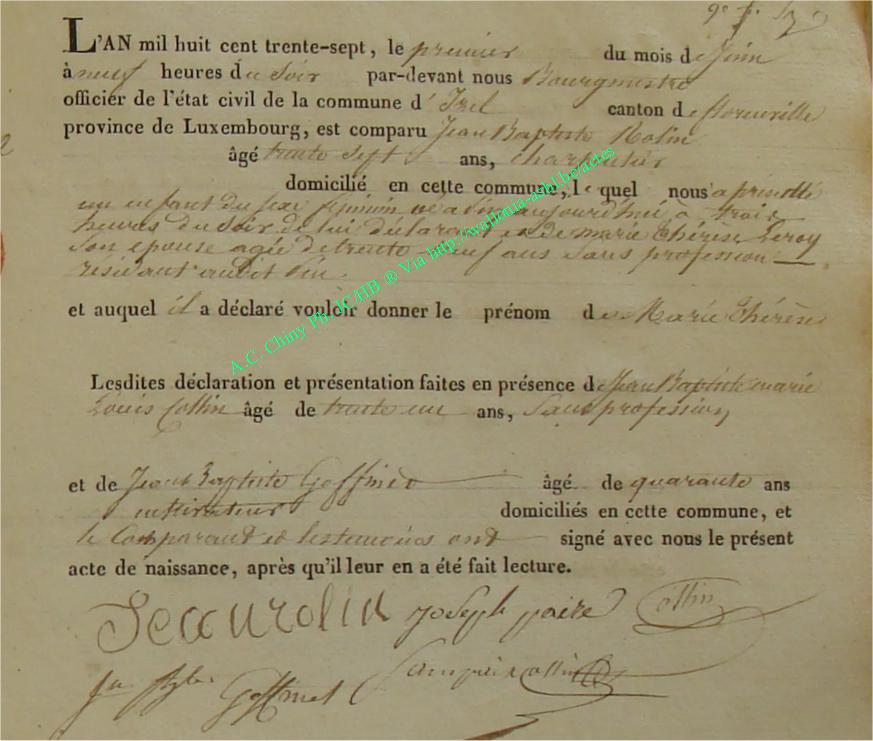 L'AN mil huit cent trente-sept, le premier du mois de Juin
à neuf heures du Soir par-devant nous Bourgmestre
officier de l'état civil de la commune d' Izel canton de florenville
province de Luxembourg, est comparu Jean Baptiste Rolin
âgé trente sept ans, charpentier
domicilié en cette commune, le quel nous a presenté
un enfant du sexe feminin né a aujourd'hui à trois
heures du Soir de lui déclarant et de marie Thérèse Leroy
son epouse agée de trente neuf ans sans profession
résidant audit
et auquel il a déclaré vouloir donner le prénom de Marie Thérèse
Lesdites déclaration et présentation faites en présence de Jean Baptiste marie
Louis Collin âgé de trente un ans, Sans profession
et de Jean Baptiste Goffinet âgé de quarante ans
cultivateur domiciliés en cette commune, et
le Comparant et les temoins ont signé avec nous le présent
acte de naissance, après qu'il leur en a été fait lecture.
Jean rolin Joseph Collin
Goffinet
A.C. Chiny Ph. JCHB ® Via http://wallonia-asbl.be/actes